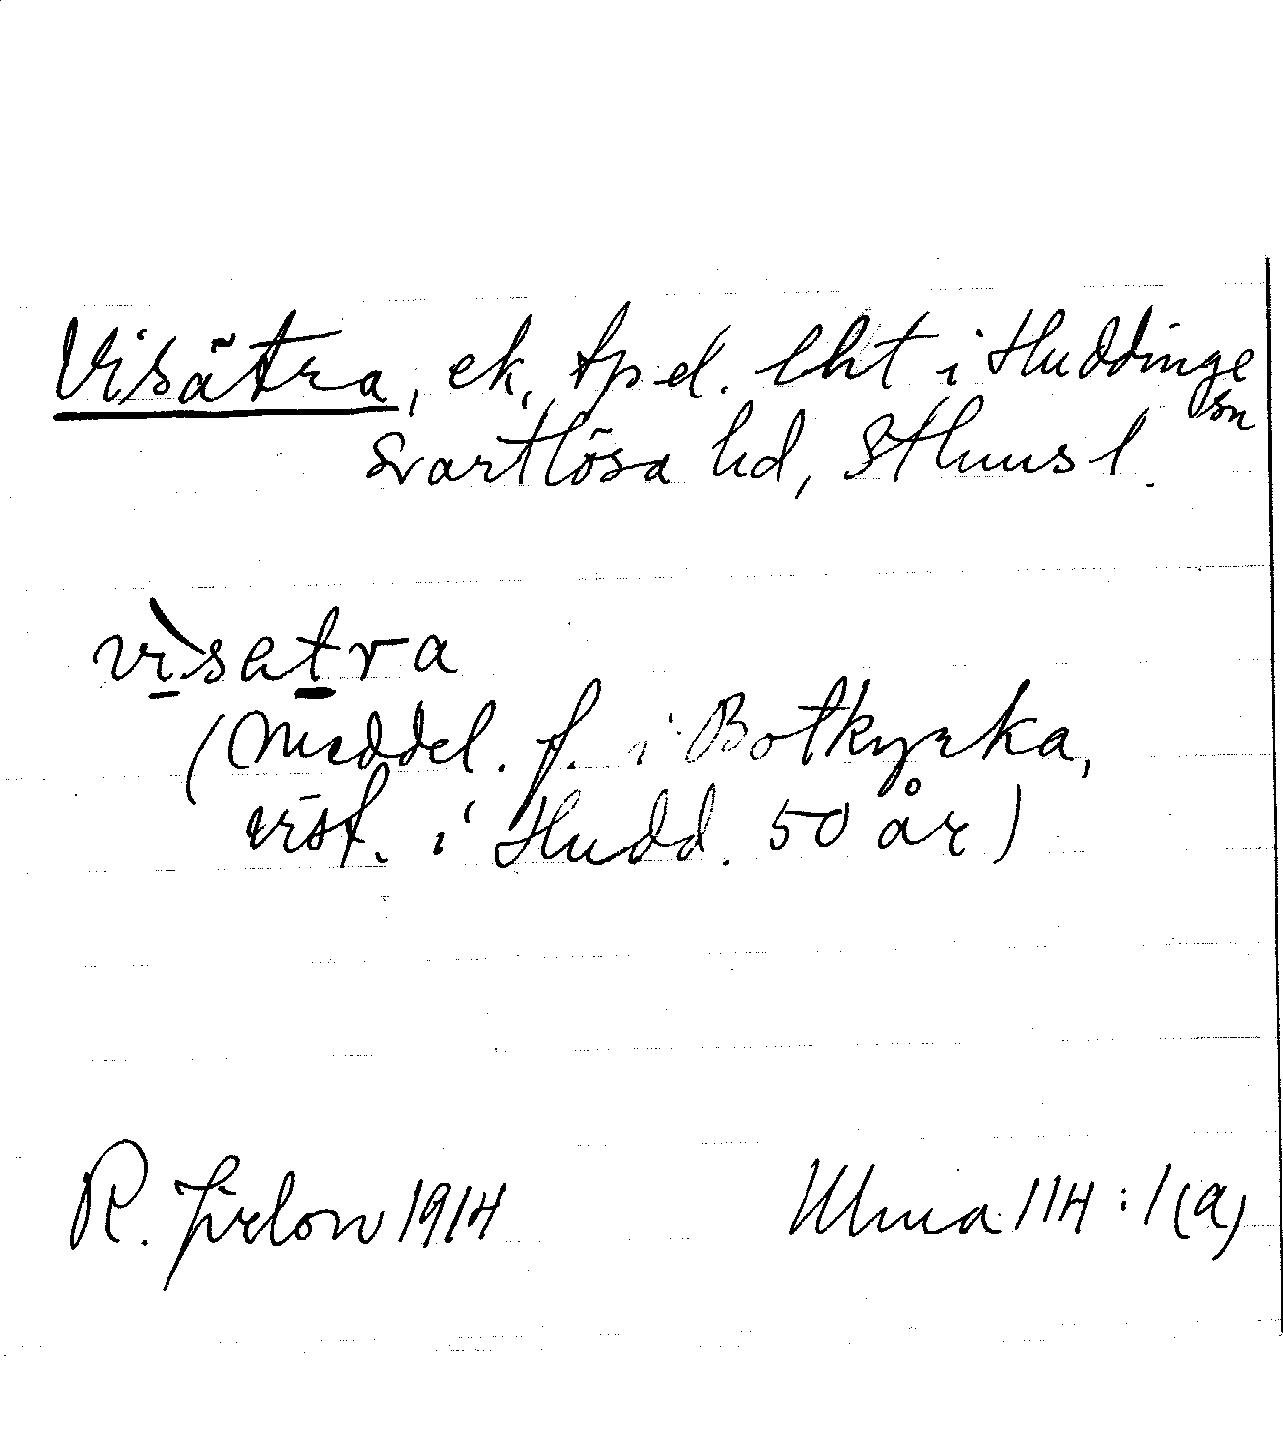 Visätra, ek, tp el. lht i Huddinge sn
Svartlösa hd, Sthlms l.
vìsetra
(Meddel. f. i Botkyrka,
vist. i Hudd. 50 år)
R. Jirlow 1914
Ulma 114:1(a)